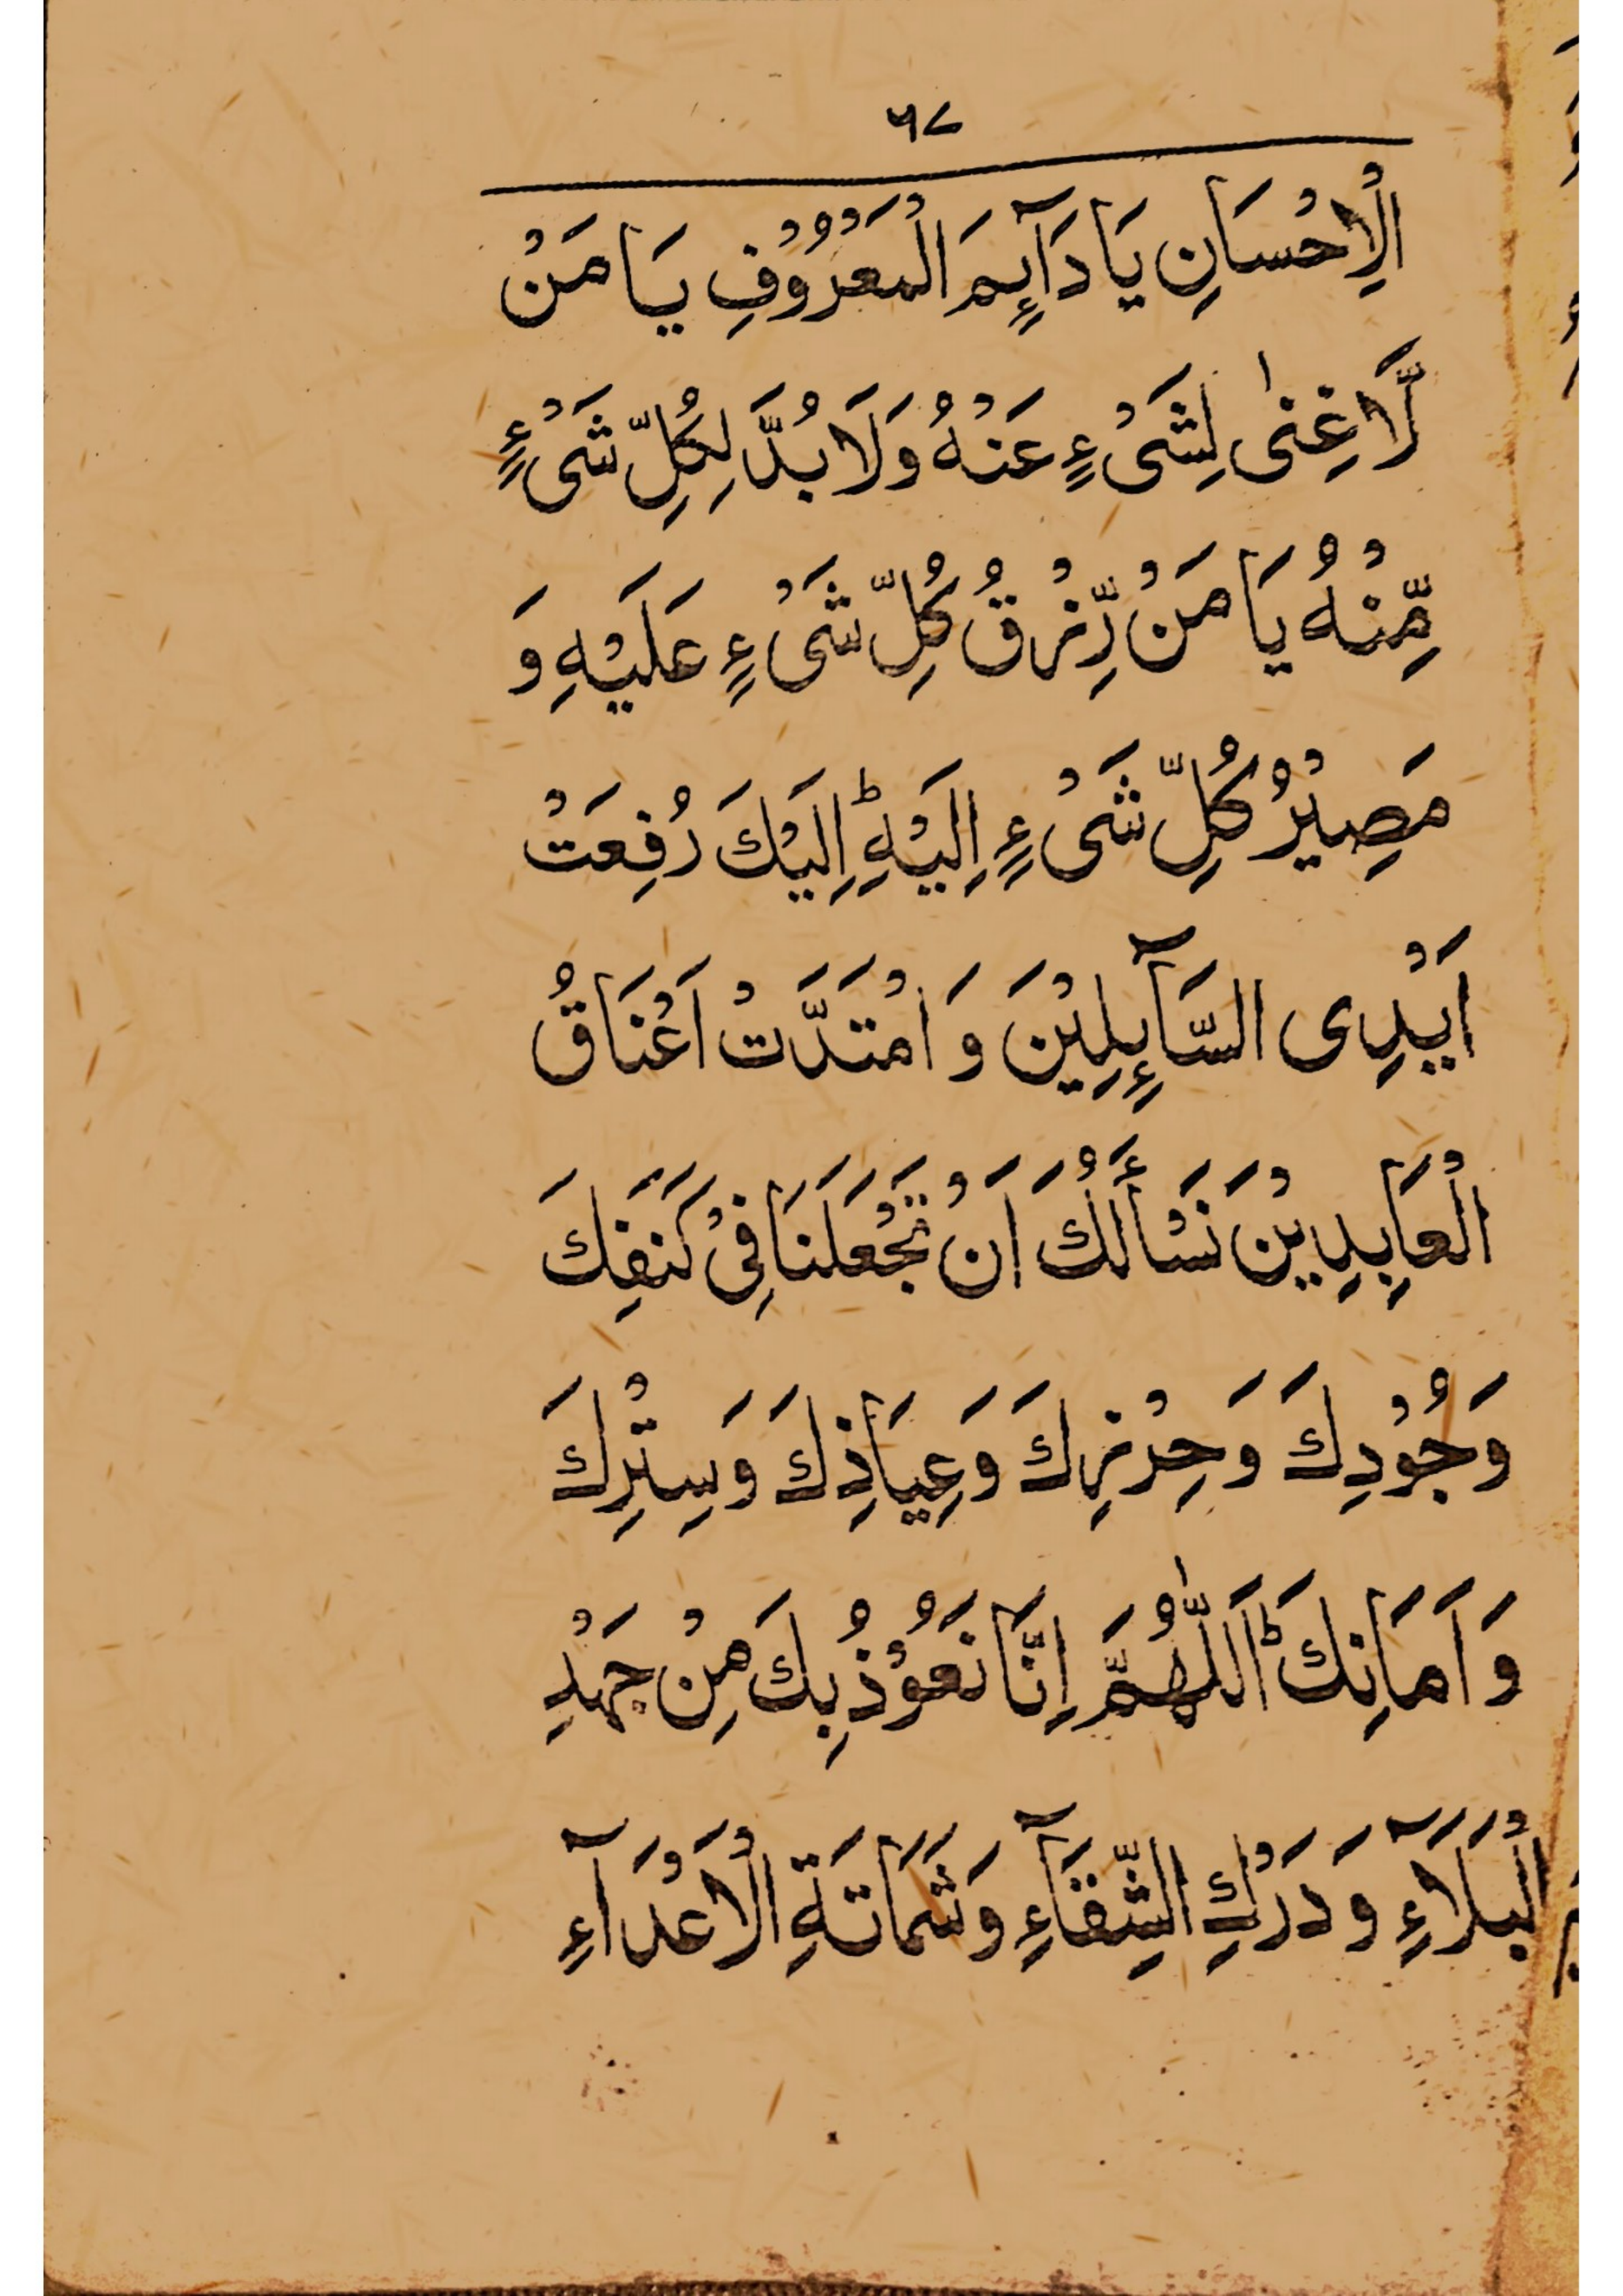 ۶۷
الْاِحْسَانِ يَا دَآئِمَ الْمَعْرُوْفِ يَا مَنْ
لَّا غِنٰى لِشَىْءٍ عَنْهُ وَلَا بُدَّ لِكُلِّ شَىْءٍ
مِّنْهُ يَا مَنْ رِّزْقُ كُلِّ شَىْءٍ عَلَيْهِ وَ
مَصِيْرُ كُلِّ شَىْءٍ اِلَيْهِ ؕ اِلَيْكَ رُفِعَتْ
اَيْدِى السَّآئِلِيْنَ وَ امْتَدَّتْ اَعْنَاقُ
الْعَابِدِيْنَ نَسْأَلُكَ اَنْ تَجْعَلَنَا فِىْ كَنَفِكَ
وَجُوْدِكَ وَحِرْزِكَ وَعِيَاذِكَ وَسِتْرِكَ
وَ اَمَانِكَ ؕ اَللّٰهُمَّ اِنَّا نَعُوْذُ بِكَ مِنْ جَهْدِ
الْبَلَآءِ وَ دَرَكِ الشِّقَآءِ وَشَمَاتَةِ الْاَعْدَآءِ